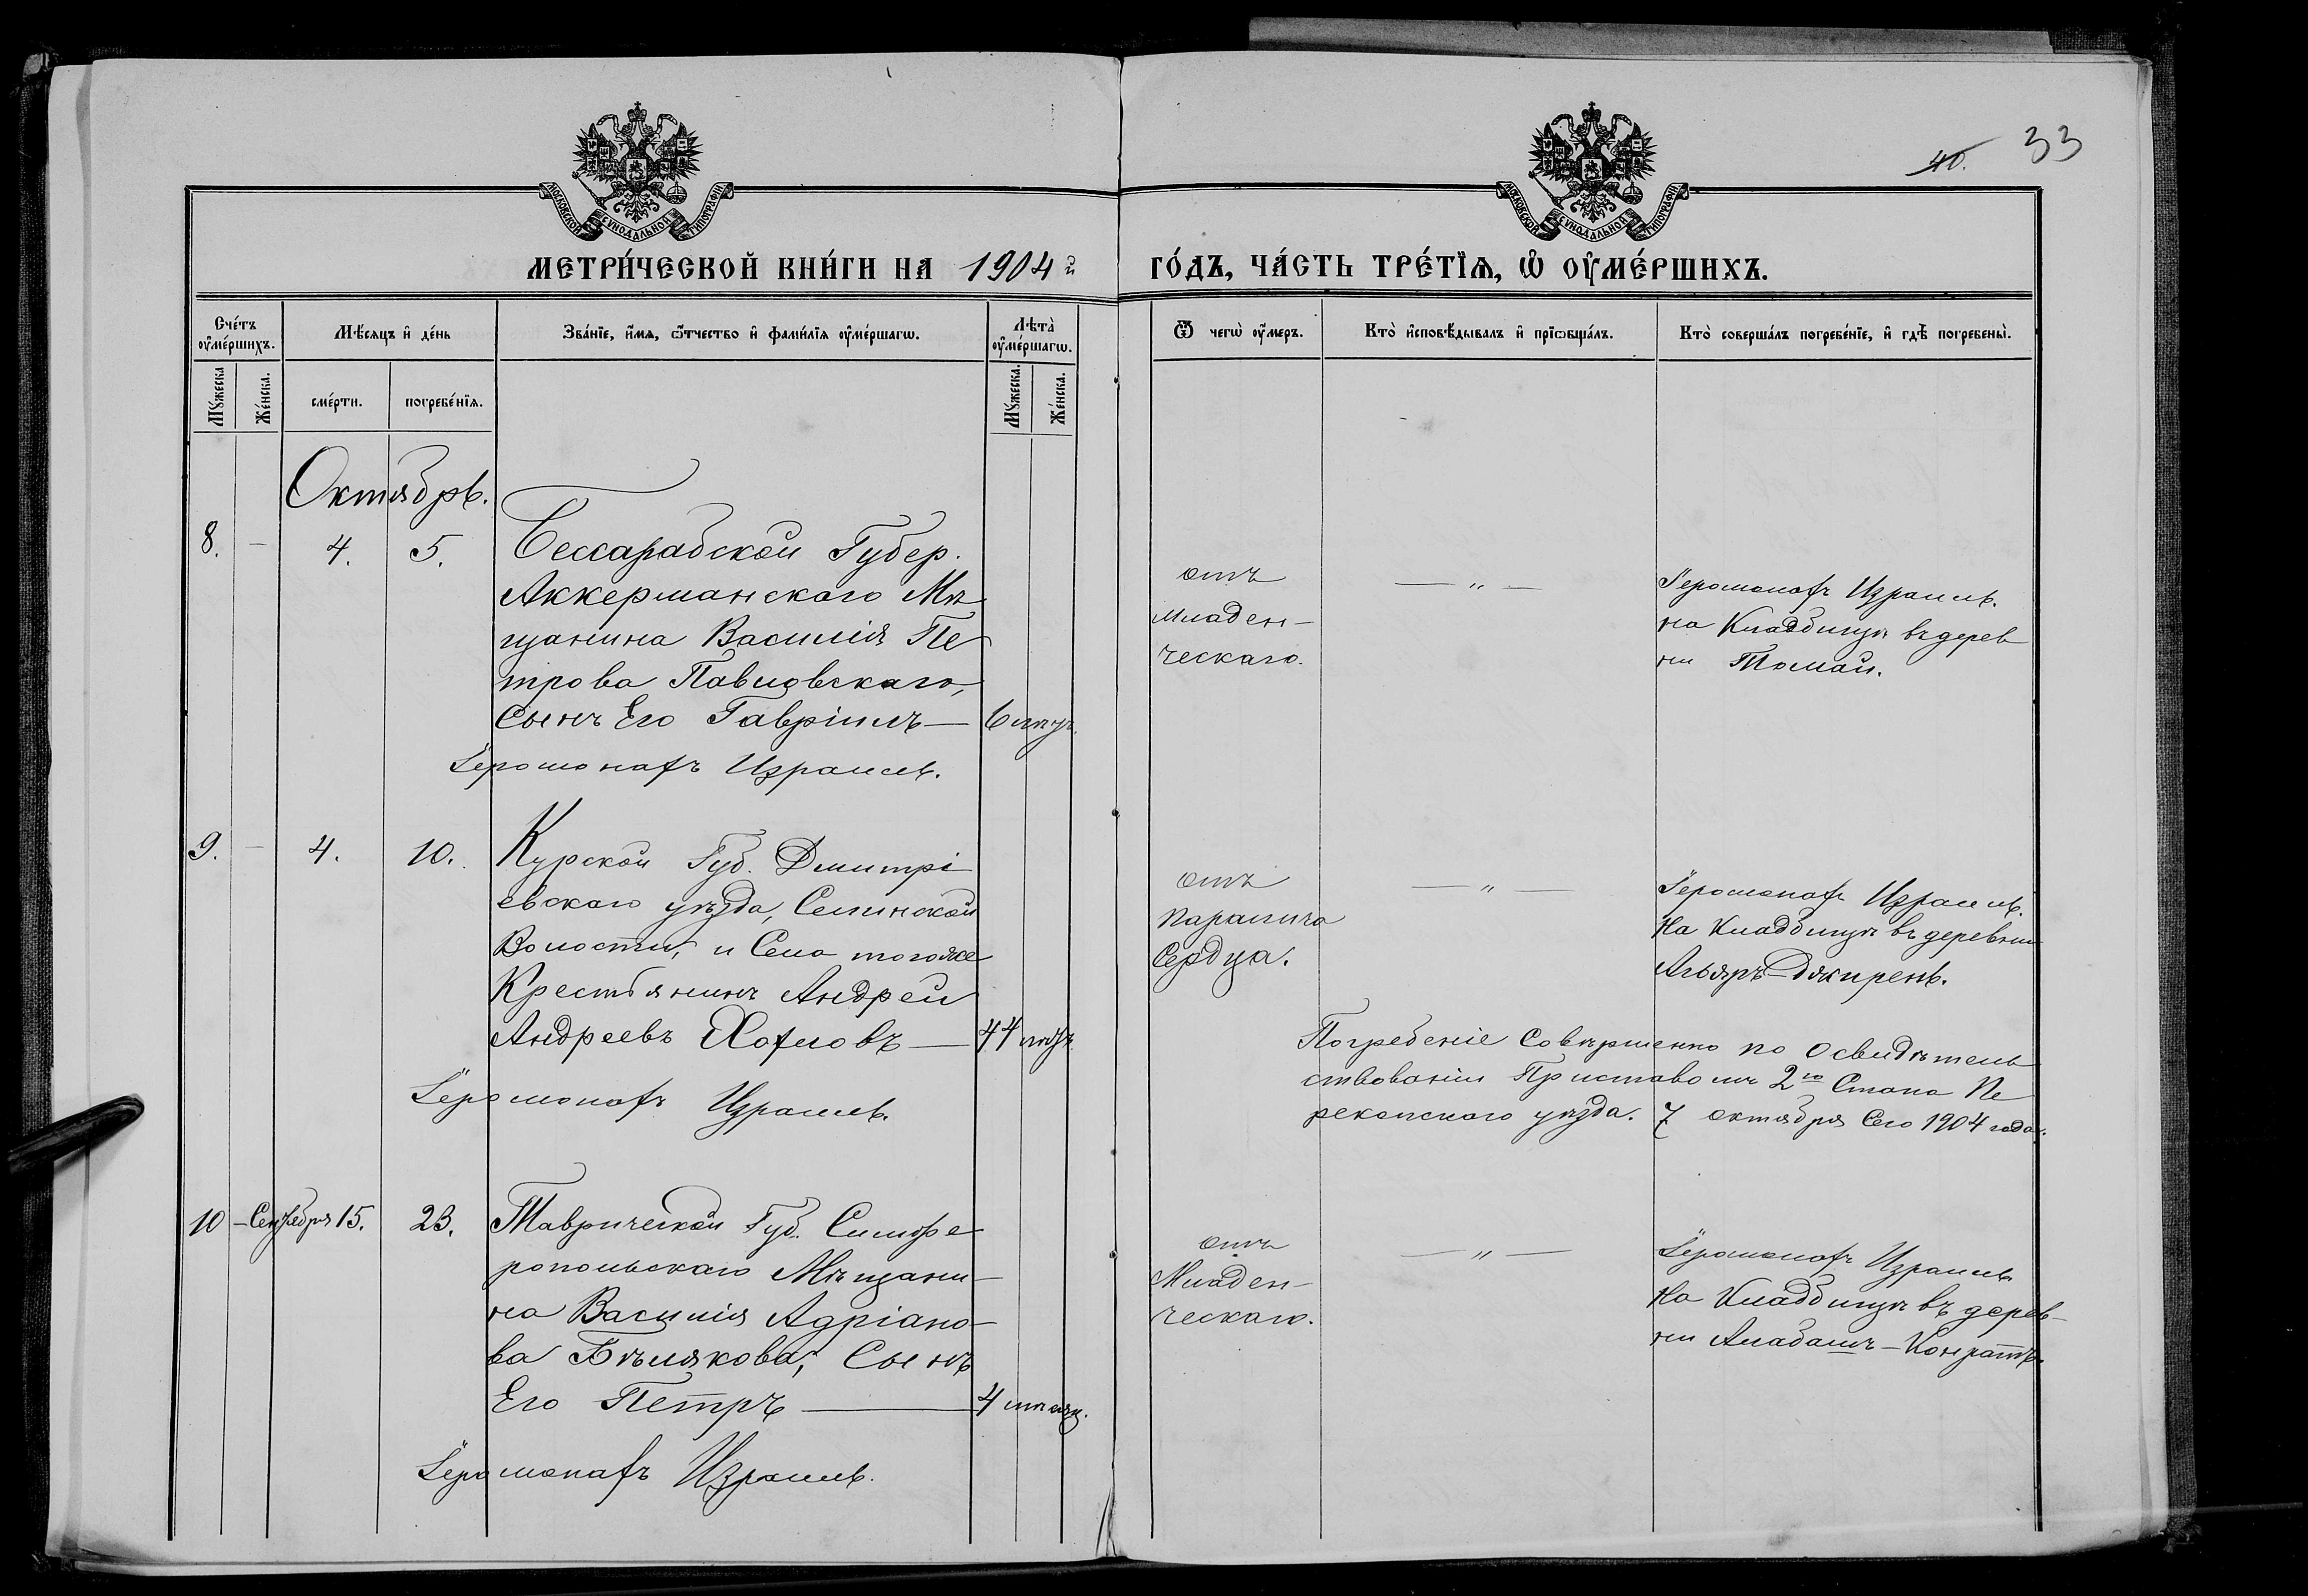 40. 33
МОСКОВСКОЙ СѴНОДАЛЬНОЙ ТИПОГРАФІИ
МОСКОВСКОЙ СѴНОДАЛЬНОЙ ТИПОГРАФІИ
МЕТРИ́ЧЕСКОЙ КНИ́ГИ НА 1904й ГО́ДЪ, ЧА́СТЬ ТРЕ́ТЇѦ, Ѡ҆ ОУ҆МЕ́РШИХЪ.
Сче́тъ оу҆ме́ршихъ.
Мꙋ́жеска
Же́нска.
Мѣ́сѧцъ и҆ де́нь
сме́рти.
погребе́нїѧ.
Зва́нїе, и҆́мѧ, ѻ҆́тчество и҆ фами́лїѧ оу҆ме́ршагѡ.
Лѣ́та оу҆ме́ршагѡ.
Мꙋ́жеска.
Же́нска.
Ѿ чегѡ̀ оу҆́меръ.
Кто̀ и҆сповѣ́дывалъ и҆ прїѡбща́лъ.
Кто̀ соверша́лъ погребе́нїе, и҆ гдѣ̀ погребены̀.
Октябрь.
8. — 4. 5. Бессарабской Губер.
Аккерманскаго Мѣ
щанина Василія Пе
трова Павловскаго,
Сынъ Его Гавріилъ —
Іеромонахъ Израиль.
отъ
младен-
ческаго.
— „ —
Іеромонахъ Израиль.
на Кладбищѣ въ дерев
ни Томай.
9. — 4. 10. Курской Губ. Дмитрі
евскаго уѣзда, Селинской
Волости, и Села тогоже
Крестьянинъ Андрей
Андреевъ Хохловъ — 44 лѣтъ
Іеромонахъ Израиль.
отъ
паралича
Сердца.
— „ —
Іеромонахъ Израиль.
На Кладбищѣ въ деревни
Погребеніе Совершенно по Освидѣтель
ствованіи Приставомъ 2го Стана Пе
рекопскаго уѣзда. 7 октября Сего 1904 года.
10 — Сентября 15. 23. Таврической Губ. Симфе
ропольскаго Мѣщани-
на Василія Адріано-
ва Бѣлякова, Сынъ
Его Петръ — 4 мѣсяц.
Іеромонахъ Израиль.
отъ
Младен-
ческаго.
— „ —
Іеромонахъ Израиль
На Кладбищѣ въ дерев-
ни Алабашъ-Конратъ.